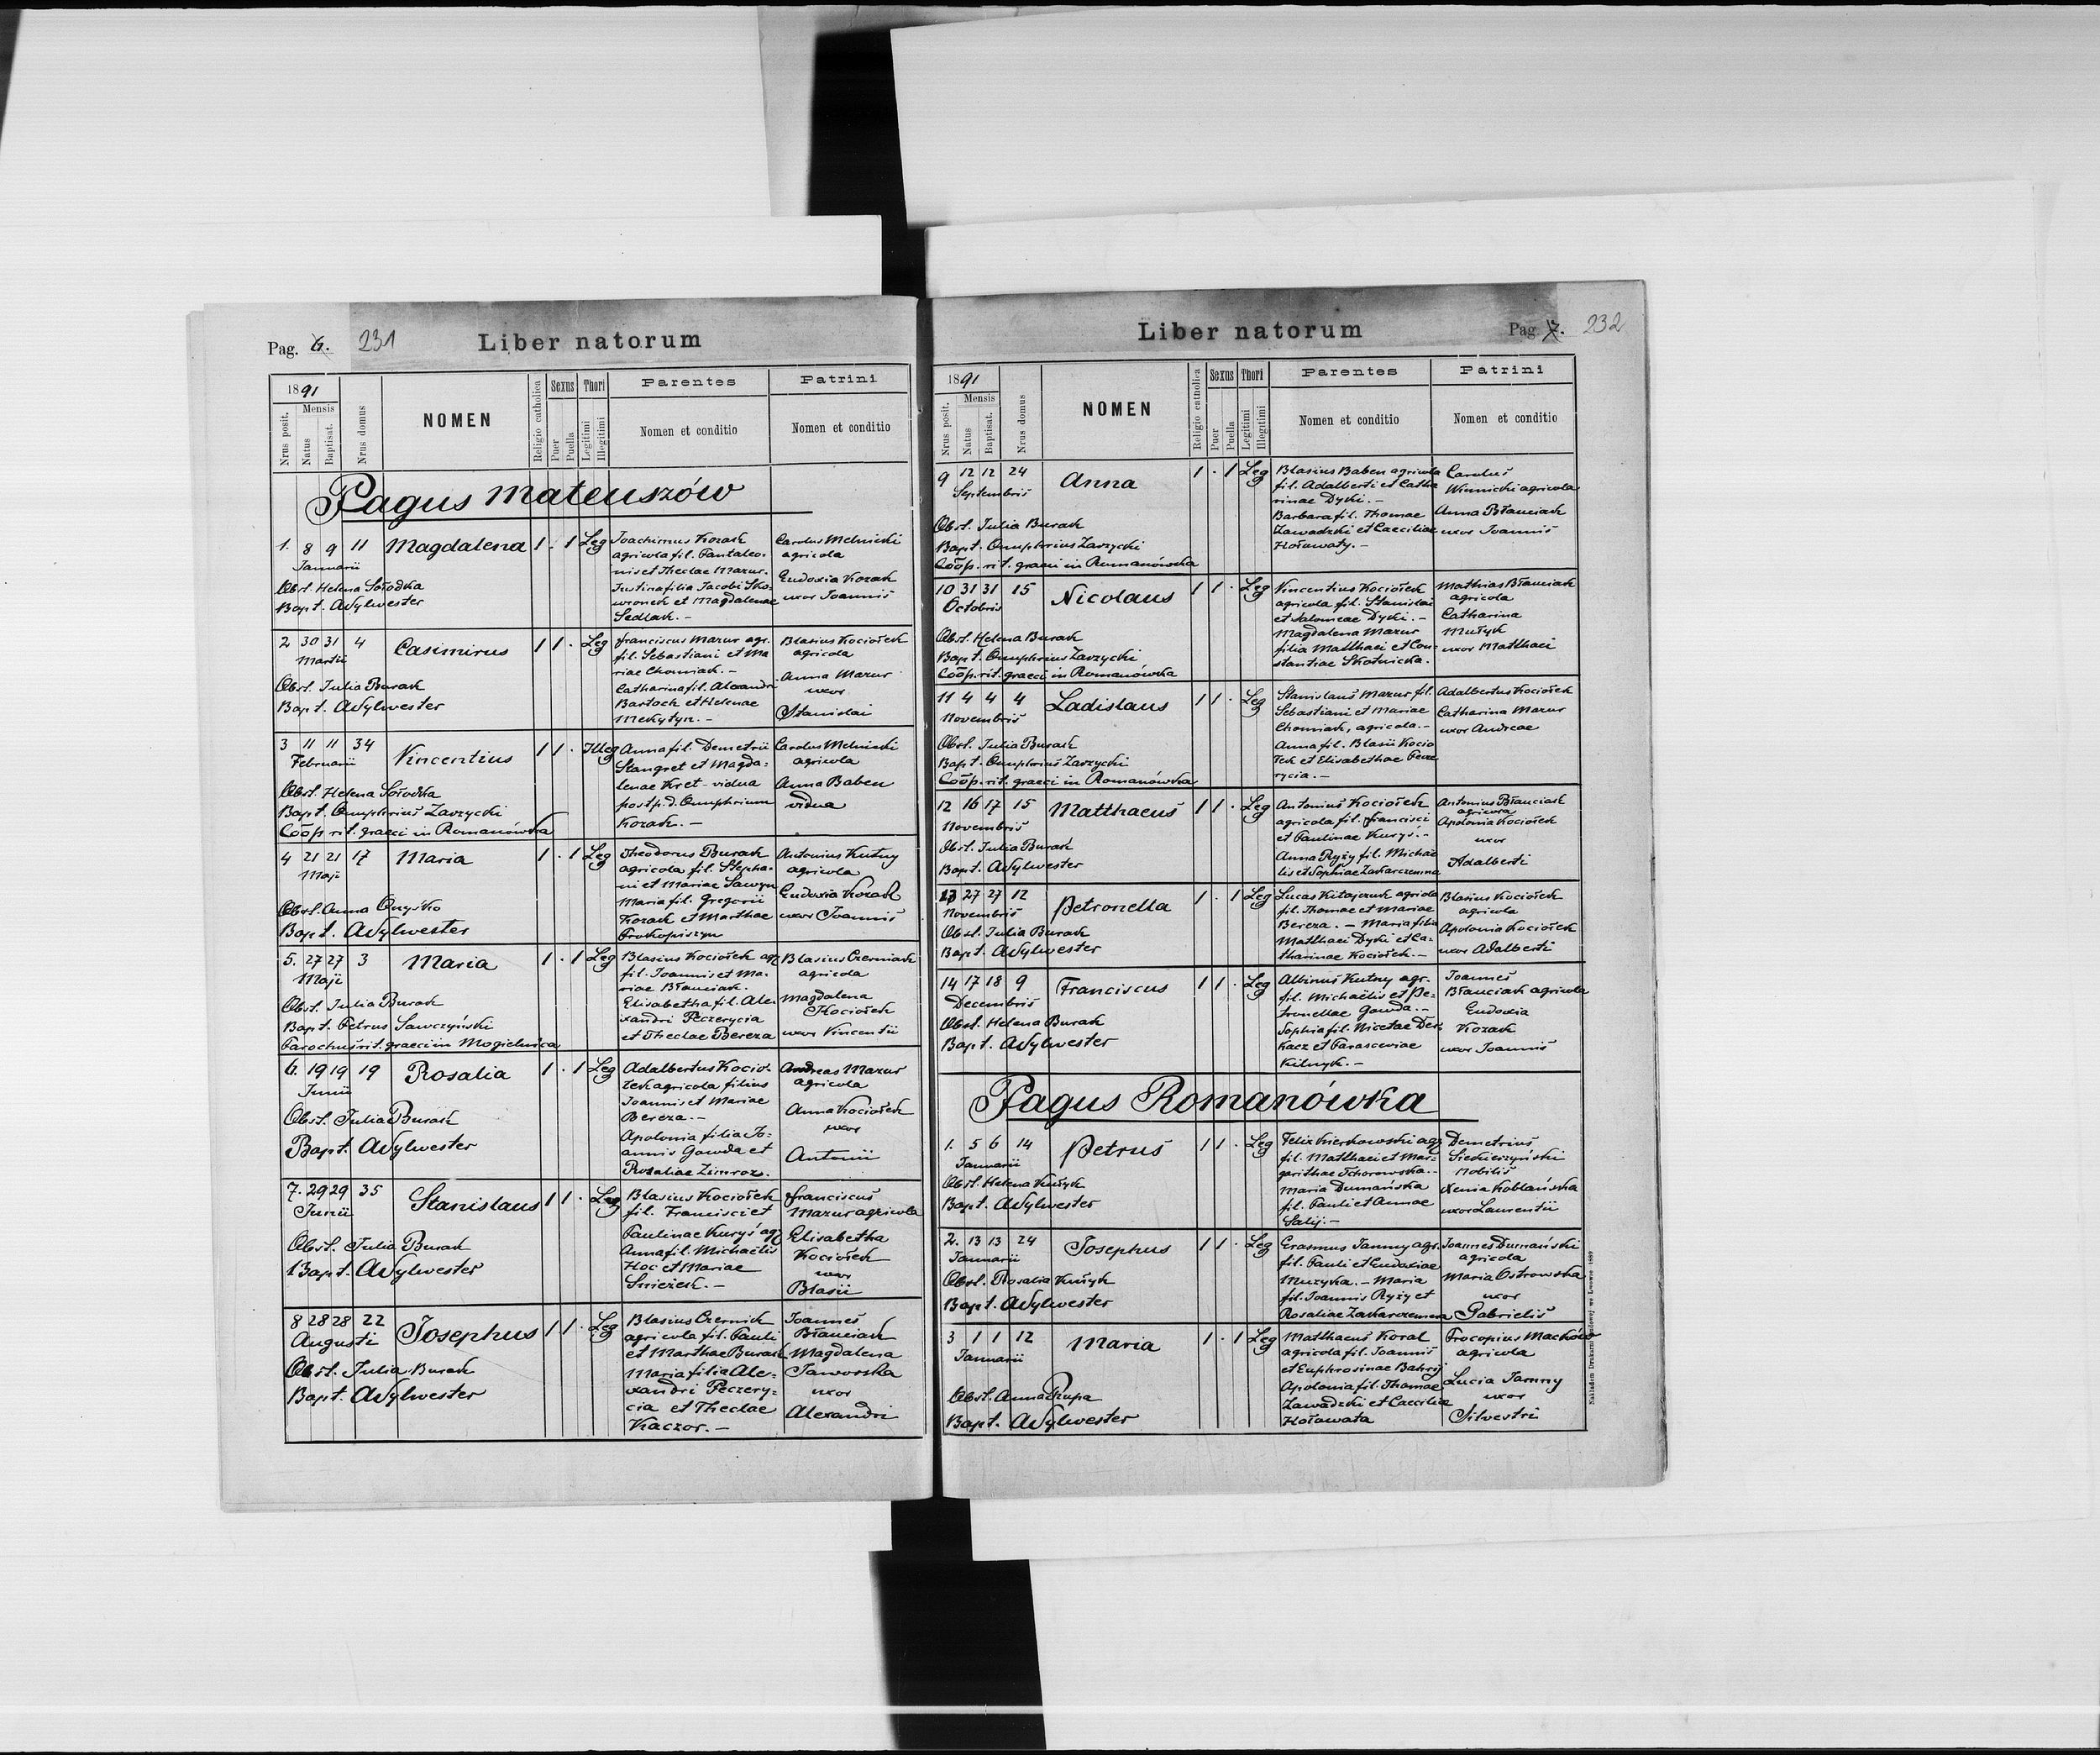 Pag. 6. 231 Liber natorum
1891
Nrus posit.
Mensis
Natus
Baptisat.
Nrus domus
NOMEN
Religio catholica
Sexus
Puer
Puella
Thori
Legitimi
Illegitimi
Parentes
Nomen et conditio
Patrini
Nomen et conditio
Pagus Mateuszów
1. 8 9 11 Magdalena 1 . 1 Leg
Januarii
Obst. Helena Sołodka
Bapt. A Sylwester
Joachimus Kozak
agricola fil. Pantaleo-
nis et Theclae Mazur.
Justina filia Jacobi Sko-
wronek et Magdalenae
Sedlak. -
Carolus Melnicki
agricola
Eudoxia Kozak
uxor Joannis
2 30 31 4 Casimirus 1 1 . Leg
Martii
Obst. Julia Burak
Bapt. A Sylwester
Franciscus Mazur agr.
fil. Sebastiani et Ma
riae Chomiak. -
Catharina fil. Alexandri
Bartoch et Helenae
Mekytyn. -
Blasius Kociołek
agricola
Anna Mazur
uxor
Stanislai
3 11 11 34 Vincentius 1 1 . Illeg
Februarii
Obst. Helena Sołodka
Bapt. Onuphrius Zarzycki
Coöp. rit. graeci in Romanówka
Anna fil. Demetrii
Stangret et Magda-
lenae Kret - vidua
post p. d. Onuphrium
Kozak. -
Carolus Melnicki
agricola
Anna Baben
vidua
4 21 21 17 Maria 1 . 1 Leg
Maji
Obst. Anna Onyśko
Bapt. A Sylwester
Theodorus Burak
agricola fil. Stepha-
ni et Mariae Sawzyn
Maria fil. Gregorii
Kozak et Marthae
Prokopiszyn
Antonius Kutny
agricola
Eudoxia Kozak
uxor Joannis
5. 27 27 3 Maria 1 . 1 Leg
Maji
Obst. Julia Burak
Bapt. Petrus Sawczyński
Parochus rit. graeci in Mogielnica
Blasius Kociołek agr
fil. Joannis et Ma-
riae Błauciak.
Elisabetha fil. Ale-
xandri Peczerycia
et Theclae Bereza
Blasius Czerniak
agricola
Magdalena
Kociołek
uxor Vincentii
6. 19 19 19 Rosalia 1 . 1 Leg
Junii
Obst. Julia Burak
Bapt. A Sylwester
Adalbertus Kocio-
łek agricola filius
Joannis et Mariae
Bereza. -
Apolonia filia Jo-
annis Gawda et
Rosaliae Zimroz.
Andreas Mazur
agricola
Anna Kociołek
uxor
Antonii
7. 29 29 35 Stanislaus 1 1 . Leg
Junii
Obst. Julia Burak
Bapt. A Sylwester
Blasius Kociołek
fil. Francisci et
Paulinae Kuryś agr
Anna fil. Michaëlis
Hoc et Mariae
Śnieżek. -
Franciscus
Mazur agricola
Elisabetha
Kociołek
uxor
Blasii
8 28 28 22 Josephus 1 1 . Leg
Augusti
Obst. Julia Burak
Bapt. A Sylwester
Blasius Czernik
agricola fil. Pauli
et Marthae Burak
Maria filia Ale-
xandri Peczery-
cia et Theclae
Kaczor. -
Joannes
Błauciak
Magdalena
Jaworska
uxor
Alexandri
Liber natorum Pag. 7. 232
1891
Nrus posit.
Mensis
Natus
Baptisat.
Nrus domus
NOMEN
Religio catholica
Sexus
Puer
Puella
Thori
Legitimi
Illegitimi
Parentes
Nomen et conditio
Patrini
Nomen et conditio
9 12 12 24 Anna 1 . 1 Leg
Septembris
Obst. Julia Burak
Bapt. Onuphrius Zarzycki
Coöp. rit. graeci in Romanówka
Blasius Baben agricola
fil. Adalberti et Catha
rinae Dyki. -
Barbara fil. Thomae
Zawadzki et Caeciliae
Hołowaty. -
Carolus
Winnicki agricola
Anna Błauciak
uxor Joannis
10 31 31 15 Nicolaus 1 1 . Leg
Octobris
Obst. Helena Burak
Bapt. Onuphrius Zarzycki
Coöp. rit. graeci in Romanówka
Vincentius Kociołek
agricola fil. Stanislai
et Salomeae Dyki. -
Magdalena Mazur
filia Matthaei et Con-
stantiae Skotnicka.
Mathias Błauciak
agricola
Catharina
Mułyk
uxor Matthaei
11 4 4 4 Ladislaus 1 1 . Leg
Novembris
Obst. Julia Burak
Bapt. Onuphrius Zarzycki
Coöp. rit. graeci in Romanówka
Stanislaus Mazur fil.
Sebastiani et Mariae
Chomiak, agricola. -
Anna fil. Blasii Kocio
łek et Elisabethae Pecze
rycia. -
Adalbertus Kociołek
Catharina Mazur
uxor Andreae
12 16 17 15 Matthaeus 1 1 . Leg
Novembris
Obst. Julia Burak
Bapt. A Sylwester
Antonius Kociołek
agricola fil. Francisci
et Paulinae Kuryś. -
Anna Ryży fil. Michae
lis et Sophiae Zakarczemna
Antonius Błauciak
agricola
Apolonia Kociołek
uxor
Adalberti
13 27 27 12 Petronella 1 . 1 Leg
Novembris
Obst. Julia Burak
Bapt. A Sylwester
Lucas Kitajczuk agricola
fil. Thomae et Mariae
Bereza. - Maria filia
Matthaei Dyki et Ca-
tharinae Kociołek. -
Blasius Kociołek
agricola
Apolonia Kociołek
uxor Adalberti
14 17 18 9 Franciscus 1 1 . Leg
Decembris
Obst. Helena Burak
Bapt. A Sylwester
Albinus Kutny agr.
fil. Michaëlis et Pe-
tronellae Gawda. -
Sophia fil. Nicetae Der-
kacz et Parasceviae
Kilnyk. -
Joannes
Błauciak agricola
Eudoxia
Kozak
uxor Joannis
Pagus Romanówka
1. 5 6 14 Petrus 1 1 . Leg
Januarii
Obst. Helena Kułyk
Bapt. A Sylwester
Felix Kierkowski agr
fil. Matthaei et Mar-
garithae Tchorowska. -
Maria Dumańska
fil. Pauli et Annae
Salij. -
Demetrius
Siekierzyński
Nobilis
Xenia Koblańska
uxor Laurentii
2. 13 13 24 Josephus 1 1 . Leg
Januarii
Obst. Rosalia Kułyk
Bapt. A Sylwester
Erasmus Jamny agr.
fil. Pauli et Eudoxiae
Muzyka. - Maria
fil. Joannis Ryży et
Rosaliae Zakarczemna
Joannes Dumański
agricola
Maria Ostrowska
uxor
Gabrielis
3 1 1 12 Maria 1 . 1 Leg
Januarii
Obst. Anna Rupa
Bapt. A Sylwester
Matthaeus Koral
agricola fil. Joannis
et Euphrosinae Bahrij
Apolonia fil. Thomae
Zawadzki et Caecilia
Hołowata
Procopius Maćków
agricola
Lucia Jamny
uxor
Silvestri
Nakładem Drukarni Ludowej we Lwowie 1889